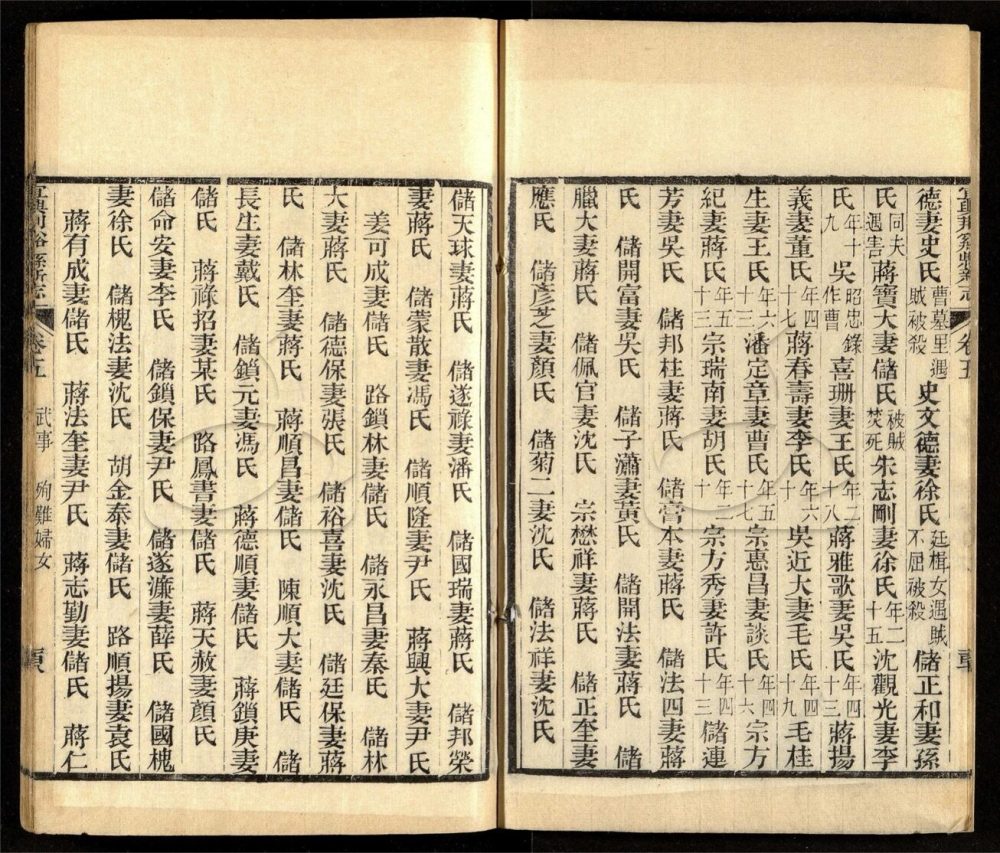 宜荆續縣新志 卷五
德妻史氏 曹墓里遇賊被殺 史文德妻徐氏 廷楫女遇賊不屈被殺 儲正和妻孫
氏 同夫遇害 蔣寶大妻儲氏 被賊焚死 朱志剛妻徐氏 年二十五 沈觀光妻李
氏 年十九 吳 昭忠錄作曹 喜珊妻王氏 年二十八 蔣雅歌妻吳氏 年四十三 蔣揚
義妻董氏 年四十七 蔣春壽妻李氏 年六十 吳近大妻毛氏 年四十九 毛桂
生妻王氏 年六十三 潘定章妻曹氏 年五十七 宗惠昌妻談氏 年四十六 宗方
紀妻蔣氏 年五十三 宗瑞南妻胡氏 年二十 宗方秀妻許氏 年四十三 儲連
芳妻吳氏 儲邦柱妻蔣氏 儲膏本妻蔣氏 儲法四妻蔣
氏 儲開富妻吳氏 儲子瀟妻黃氏 儲開法妻蔣氏 儲
臘大妻蔣氏 儲佩官妻沈氏 宗懋祥妻蔣氏 儲正奎妻
應氏 儲彥芝妻顏氏 儲菊二妻沈氏 儲法祥妻沈氏
儲天球妻蔣氏 儲遂祿妻潘氏 儲國瑞妻蔣氏 儲邦榮
妻蔣氏 儲蒙散妻馮氏 儲順隆妻尹氏 蔣興大妻尹氏
姜可成妻儲氏 路鎖林妻儲氏 儲永昌妻秦氏 儲林
大妻蔣氏 儲德保妻張氏 儲裕喜妻沈氏 儲廷保妻蔣
氏 儲林奎妻蔣氏 蔣順昌妻儲氏 陳順大妻儲氏 儲
長生妻戴氏 儲鎖元妻馮氏 蔣德順妻儲氏 蔣鎖庚妻
儲氏 蔣祿招妻某氏 路鳳書妻儲氏 蔣天赦妻顏氏
儲命安妻李氏 儲鎖保妻尹氏 儲遂濂妻薛氏 儲國槐
妻徐氏 儲槐法妻沈氏 胡金泰妻儲氏 路順揚妻袁氏
蔣有成妻儲氏 蔣法奎妻尹氏 蔣志勤妻儲氏 蔣仁
卷五 武事 殉難婦女